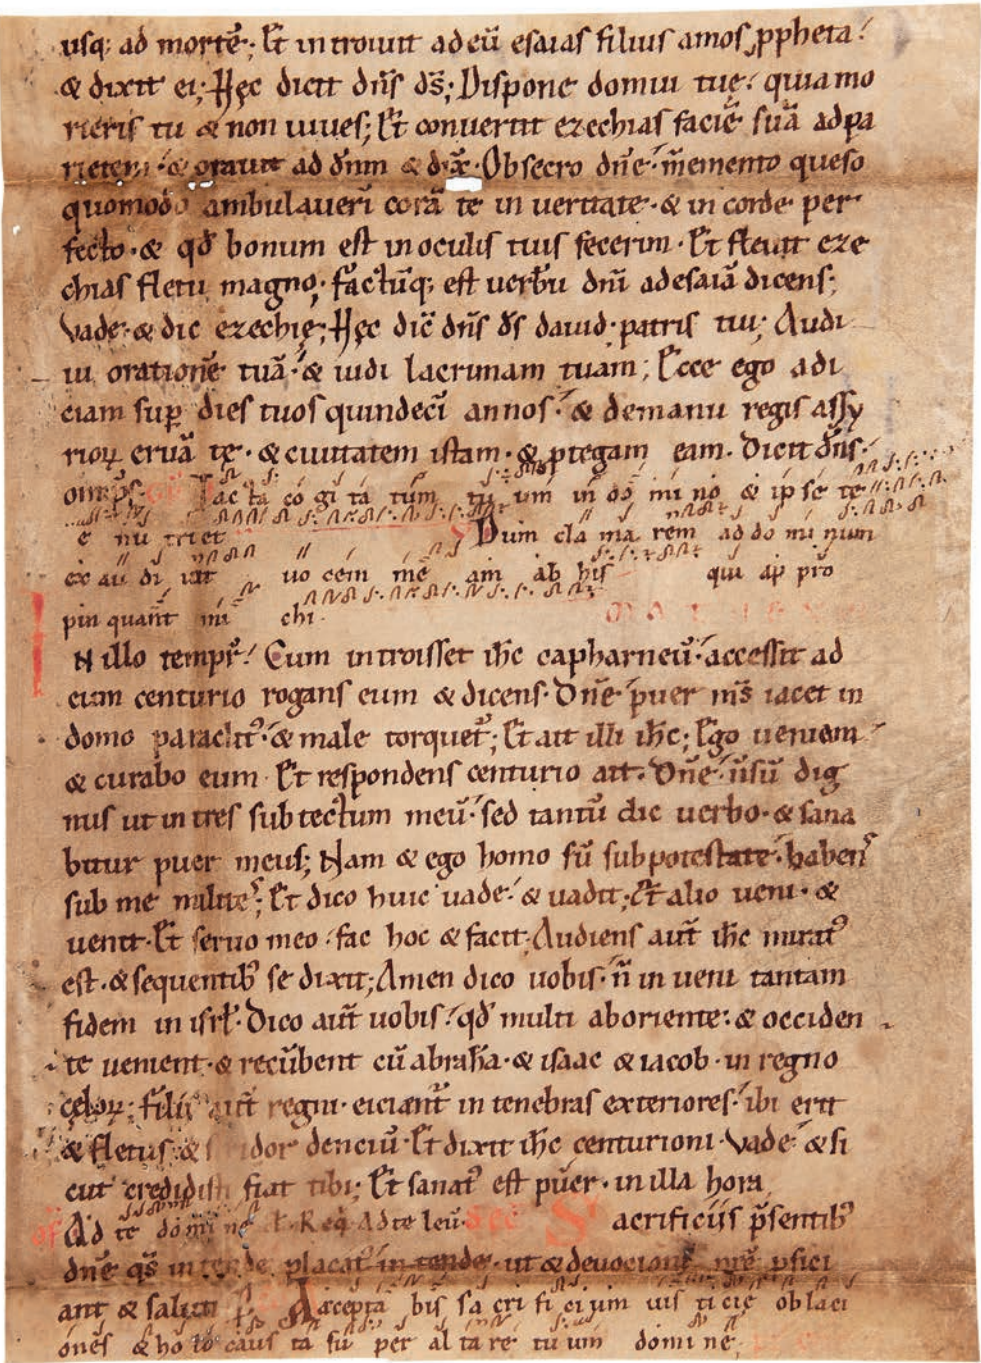 usq; ad mortē; Et introiuit ad eū esaias filius amos ppheta;
& dixit ei; Hęc dicit dn̄s ds̄; Dispone domui tuę; quia mo
rieris tu & non uiues; Et conuertit ezechias faciē suā ad pa
rietem; & orauit ad dn̄m & dix̄; Obsecro dn̄e; m̄emento queso
quomodo ambulauerī corā te in ueritate · & in corde per
fecto · & qđ bonum est in oculis tuis fecerim · Et fleuit eze
chias fletu magno; factūq; est uerbū dnī ad esaiā dicens;
Vade · & dic ezechię; Hęc dic̄ dn̄s ds̄ dauid · patris tui; Audi
ui orationē tuā · & uidi lacrimam tuam; Ecce ego adi
ciam sup dies tuos quindecī annos · & de manu regis assy
rioꝝ eruā te · & ciuitatem istam · & ptegam eam. Dicit dn̄s ·
omps. Iac ta co gi ta tum tu um in do mi no & ip se te
e nu tri et Dum cla ma rem ad do mi num
ex au di uit uo cem me am ab his qui ap pro
pin quant mi chi ·
N illo tempr̄; Cum introisset ih̄c capharneū · accessit ad
eum centurio rogans eum & dicens · Dn̄e puer m̄s iacet in
domo paralit᾽ · & male torquet᾽; Et ait illi ih̄c; Ego ueniam
& curabo eum · Et respondens centurio ait · Dn̄e n̄ sū dig
nus ut intres sub tectum meū · sed tantū dic uerbo · & sana
bitur puer meus; Nam & ego homo sū sub potestate · habens
sub me milites; Et dico huic uade · & uadit; Et alio ueni · &
uenit · Et seruo meo · fac hoc & facit · Audiens aut̄ ih̄c mirat᾽
est · & sequentib᾽ se dixit; Amen dico uobis · n̄ inueni tantam
fidem in isrl̄ · Dico aut̄ uobis · qđ multi ab oriente · & occiden
te uenient · & recūbent cū abrahā · & isaac & iacob · in regno
cęloꝝ; filii aut̄ regni · eiciant᾽ in tenebras exteriores · ibi erit
& fletus & stridor denciū · Et dixit ih̄c centurioni · Vade · & si
cut credidisti fiat tibi; Et sanat᾽ est puer · in illa hora
Ad te domine Req̄ Ad te leu · Sacrificiis p̄sentib᾽
dn̄e qs̄ intende placat᾽ intende · ut & deuocioni nr̄ę pfici
ant & saluti Accepta bis sa cri fi ci um ius ti cię ob laci
ones & ho lo caus ta sup al ta re tu um domi ne